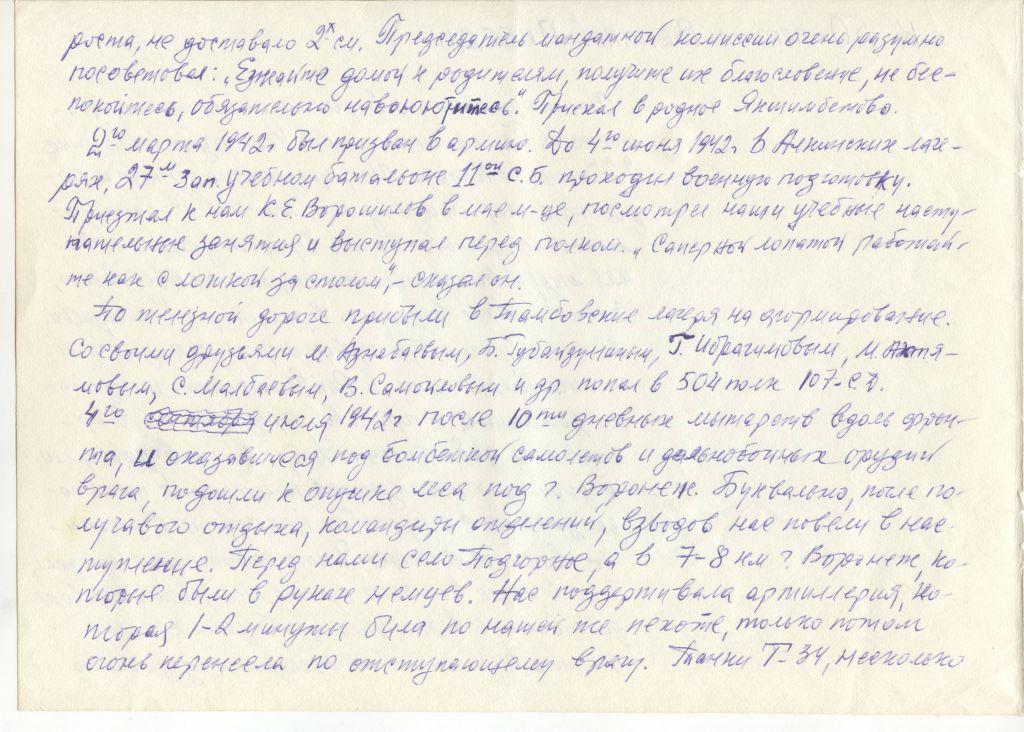 роста, не доставало 2х см. Председатель мандатной комиссии очень разумно
посоветовал: „Езжайте домой к родителям, получите их благословение, не бес-
покойтесь, обязательно навоюетесь“. Приехал в родное Якшимбетово.
9го марта 1942г был призван в армию. До 4го июня 1942г в Алкинских лаге-
рях, 27м Зап. учебном батальоне 11ой С.Б. проходил военную подготовку.
Приезжал к нам К.Е. Ворошилов в мае м-це, посмотрел наши учебные насту-
пательные занятия и выступал перед полком. „Саперной лопатой работай-
те как с ложкой за столом“, – сказал он.
По железной дороге прибыли в Тамбовские лагеря на сформирование.
Со своими друзьями М. Азнабаевым, Б. Губайдуллиным, Г. Ибрагимовым, М.
мовым, С. Малбаевым, В. Самойловым и др. попал в 504 полк 107-С.Д.
4го июля 1942г после 10ти дневных мытарств вдоль фрон-
та, и оказавшиеся под бомбежкой самолетов и дальнобойных орудий
врага, подошли к опушке леса под г. Воронеж. Буквально, после по-
лучавого отдыха, командиры отделений, взводов нас повели в нас-
тупление. Перед нами село Подгорное, а в 7-8 км г. Воронеж, ко-
торые были в руках немцев. Нас поддерживала артиллерия, ко-
торая 1-2 минуты била по нашей же пехоте, только потом
огонь перенесла по отступающему врагу. Танки Т-34, несколько